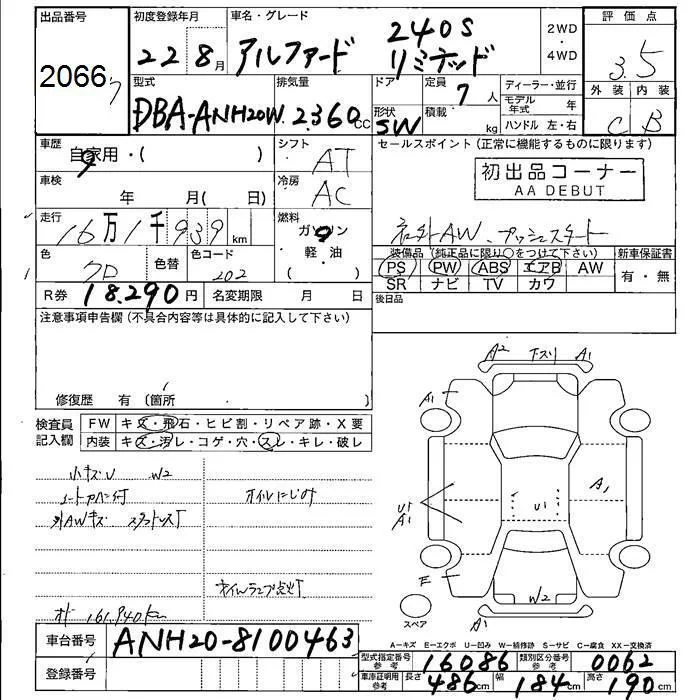 出品番号 初度登録年月 車名・グレード 評価点
2066 22 8月 アルファード 240S リミテッド 2WD・4WD 3.5
型式 排気量 ドア 定員 ディーラー・並行 外装 内装
DBA-ANH20W 2.360cc 形状 SW 7人 積載 kg モデル年式 年 ハンドル 左・右 C B
車歴 自家用・( ) シフト AT セールスポイント(正常に機能するものに限ります)
車検 年 月( 日) 冷房 AC 初出品コーナー
AA DEBUT
走行 16万1千939km 燃料 ガソリン 軽・油 ( ) 社外AW、プッシュスタート
色 クロ 色替 色コード 202 装備品(純正品に限り○をつけて下さい) 新車保証書
PS PW ABS エアB AW 有・無
R券 18.290円 名変期限 月 日 SR ナビ TV カワ
後日品
注意事項申告欄(不具合内容等は具体的に記入して下さい)
修復歴 有(箇所 )
A2 下スリ A1
検査員記入欄 FW キズ・飛石・ヒビ割・リペア跡・X要
内装 キズ・汚レ・コゲ・穴・スレ・キレ・破レ
A1
小キズU W2
オイルにじみ
外AWキズ
U1 A1 U1 A1
E W2
オイルランプ点灯
スペア A1
車台番号 ANH20-8100463
A=キズ E=エクボ U=凹み W=補修跡 S=サビ C=腐食 XX=交換済
登録番号 型式指定番号参考 16086 類別区分番号参考 0062
車庫証明用参考 長さ 486cm 幅 184cm 高さ 190cm